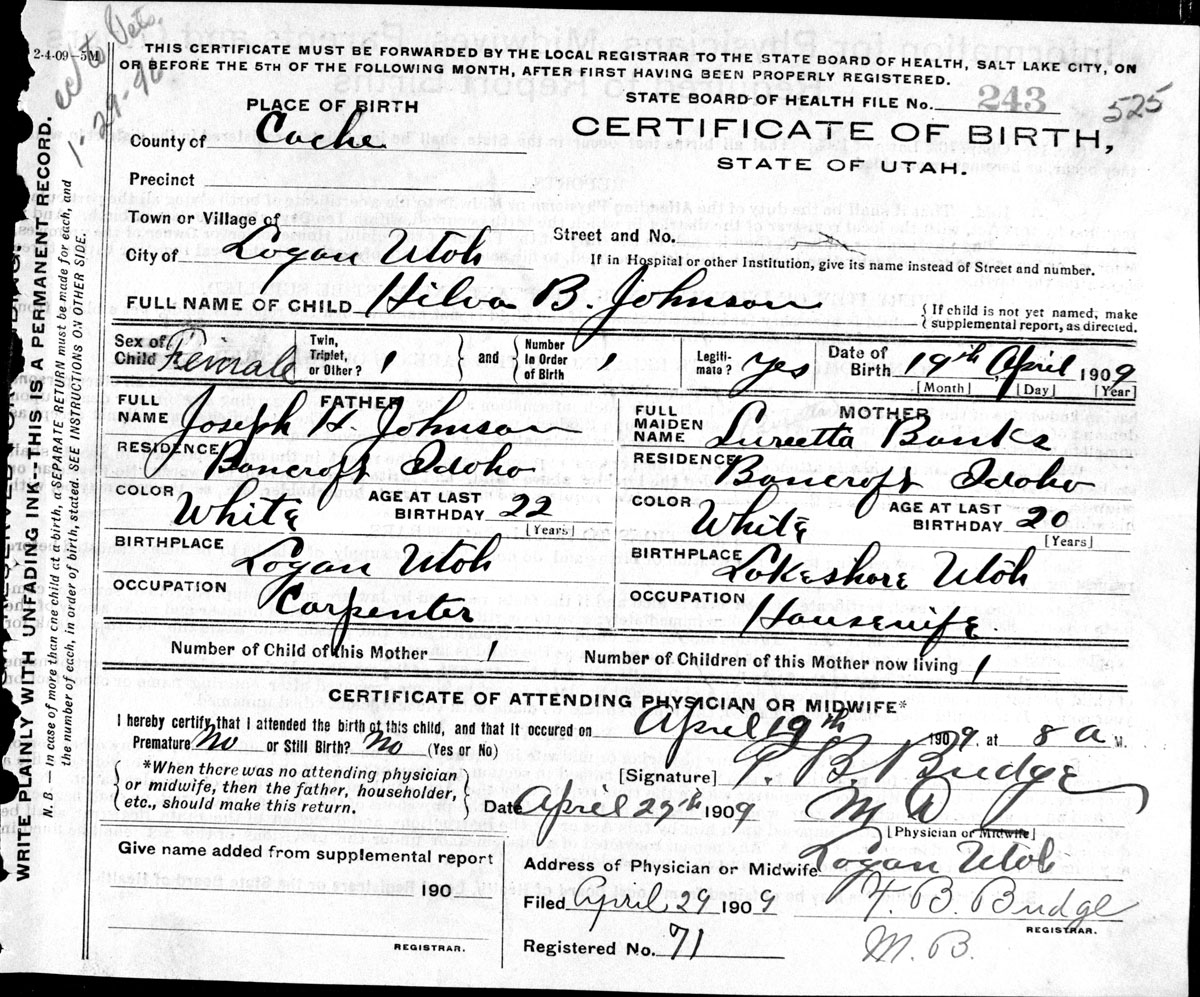 2-4-09—5M
1-29-46
THIS CERTIFICATE MUST BE FORWARDED BY THE LOCAL REGISTRAR TO THE STATE BOARD OF HEALTH, SALT LAKE CITY, ON
OR BEFORE THE 5TH OF THE FOLLOWING MONTH, AFTER FIRST HAVING BEEN PROPERLY REGISTERED.
STATE BOARD OF HEALTH FILE No. 243 525
PLACE OF BIRTH
CERTIFICATE OF BIRTH,
STATE OF UTAH.
County of Cache
Precinct
Town or Village of
Street and No.
City of Logan Utah
If in Hospital or other Institution, give its name instead of Street and number.
FULL NAME OF CHILD Hilva B. Johnson
{If child is not yet named, make
supplemental report, as directed.
Sex of Child Female
Twin, Triplet, or Other? 1 } and { Number In Order of Birth 1
Legiti-mate? Yes
Date of Birth 19th April 1909
[Month] [Day] [Year]
FATHER
FULL NAME Joseph H. Johnson
RESIDENCE Bancroft Idaho
COLOR White AGE AT LAST BIRTHDAY 22
[Years]
BIRTHPLACE Logan Utah
OCCUPATION Carpenter
MOTHER
FULL MAIDEN NAME Lureetta Banks
RESIDENCE Bancroft Idaho
COLOR White AGE AT LAST BIRTHDAY 20
[Years]
BIRTHPLACE Lakeshore Utah
OCCUPATION Housewife.
Number of Child of this Mother 1
Number of Children of this Mother now living 1
CERTIFICATE OF ATTENDING PHYSICIAN OR MIDWIFE*
I hereby certify that I attended the birth of this child, and that it occured on April 19th 1909, at 8 a M.
Premature No or Still Birth? No (Yes or No)
{*When there was no attending physician
or midwife, then the father, householder,
etc., should make this return.}
[Signature] T. B. Budge
Date April 29th 1909 M D
[Physician or Midwife]
Give name added from supplemental report
190
REGISTRAR.
Address of Physician or Midwife Logan Utah
Filed April 29 1909 T. B. Budge
REGISTRAR.
Registered No. 71 M. B.
WRITE PLAINLY WITH UNFADING INK—THIS IS A PERMANENT RECORD.
N. B.—In case of more than one child at birth, a SEPARATE RETURN must be made for each, and
the number of each, in order of birth, stated. SEE INSTRUCTIONS ON OTHER SIDE.